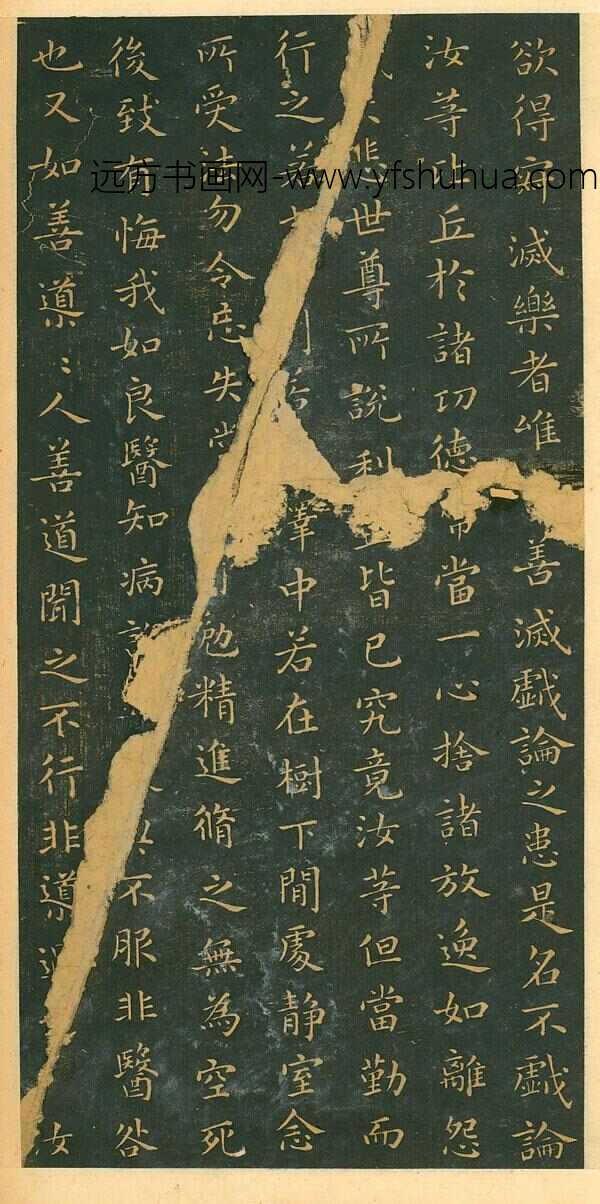 欲得寂滅樂者唯善滅戯論之患是名不戯論
汝等比丘於諸功德常當一心捨諸放逸如離怨
悲世尊所說利益皆已究竟汝等但當勤而
行之若間若中若在樹下閒處静室念
所受法勿令忘失常勉精進脩之無為空死
後致有悔我如良醫知病說不服非醫咎
也又如善導〻人善道聞之不行非導過汝
远方书画网-www.yfshuhua.com